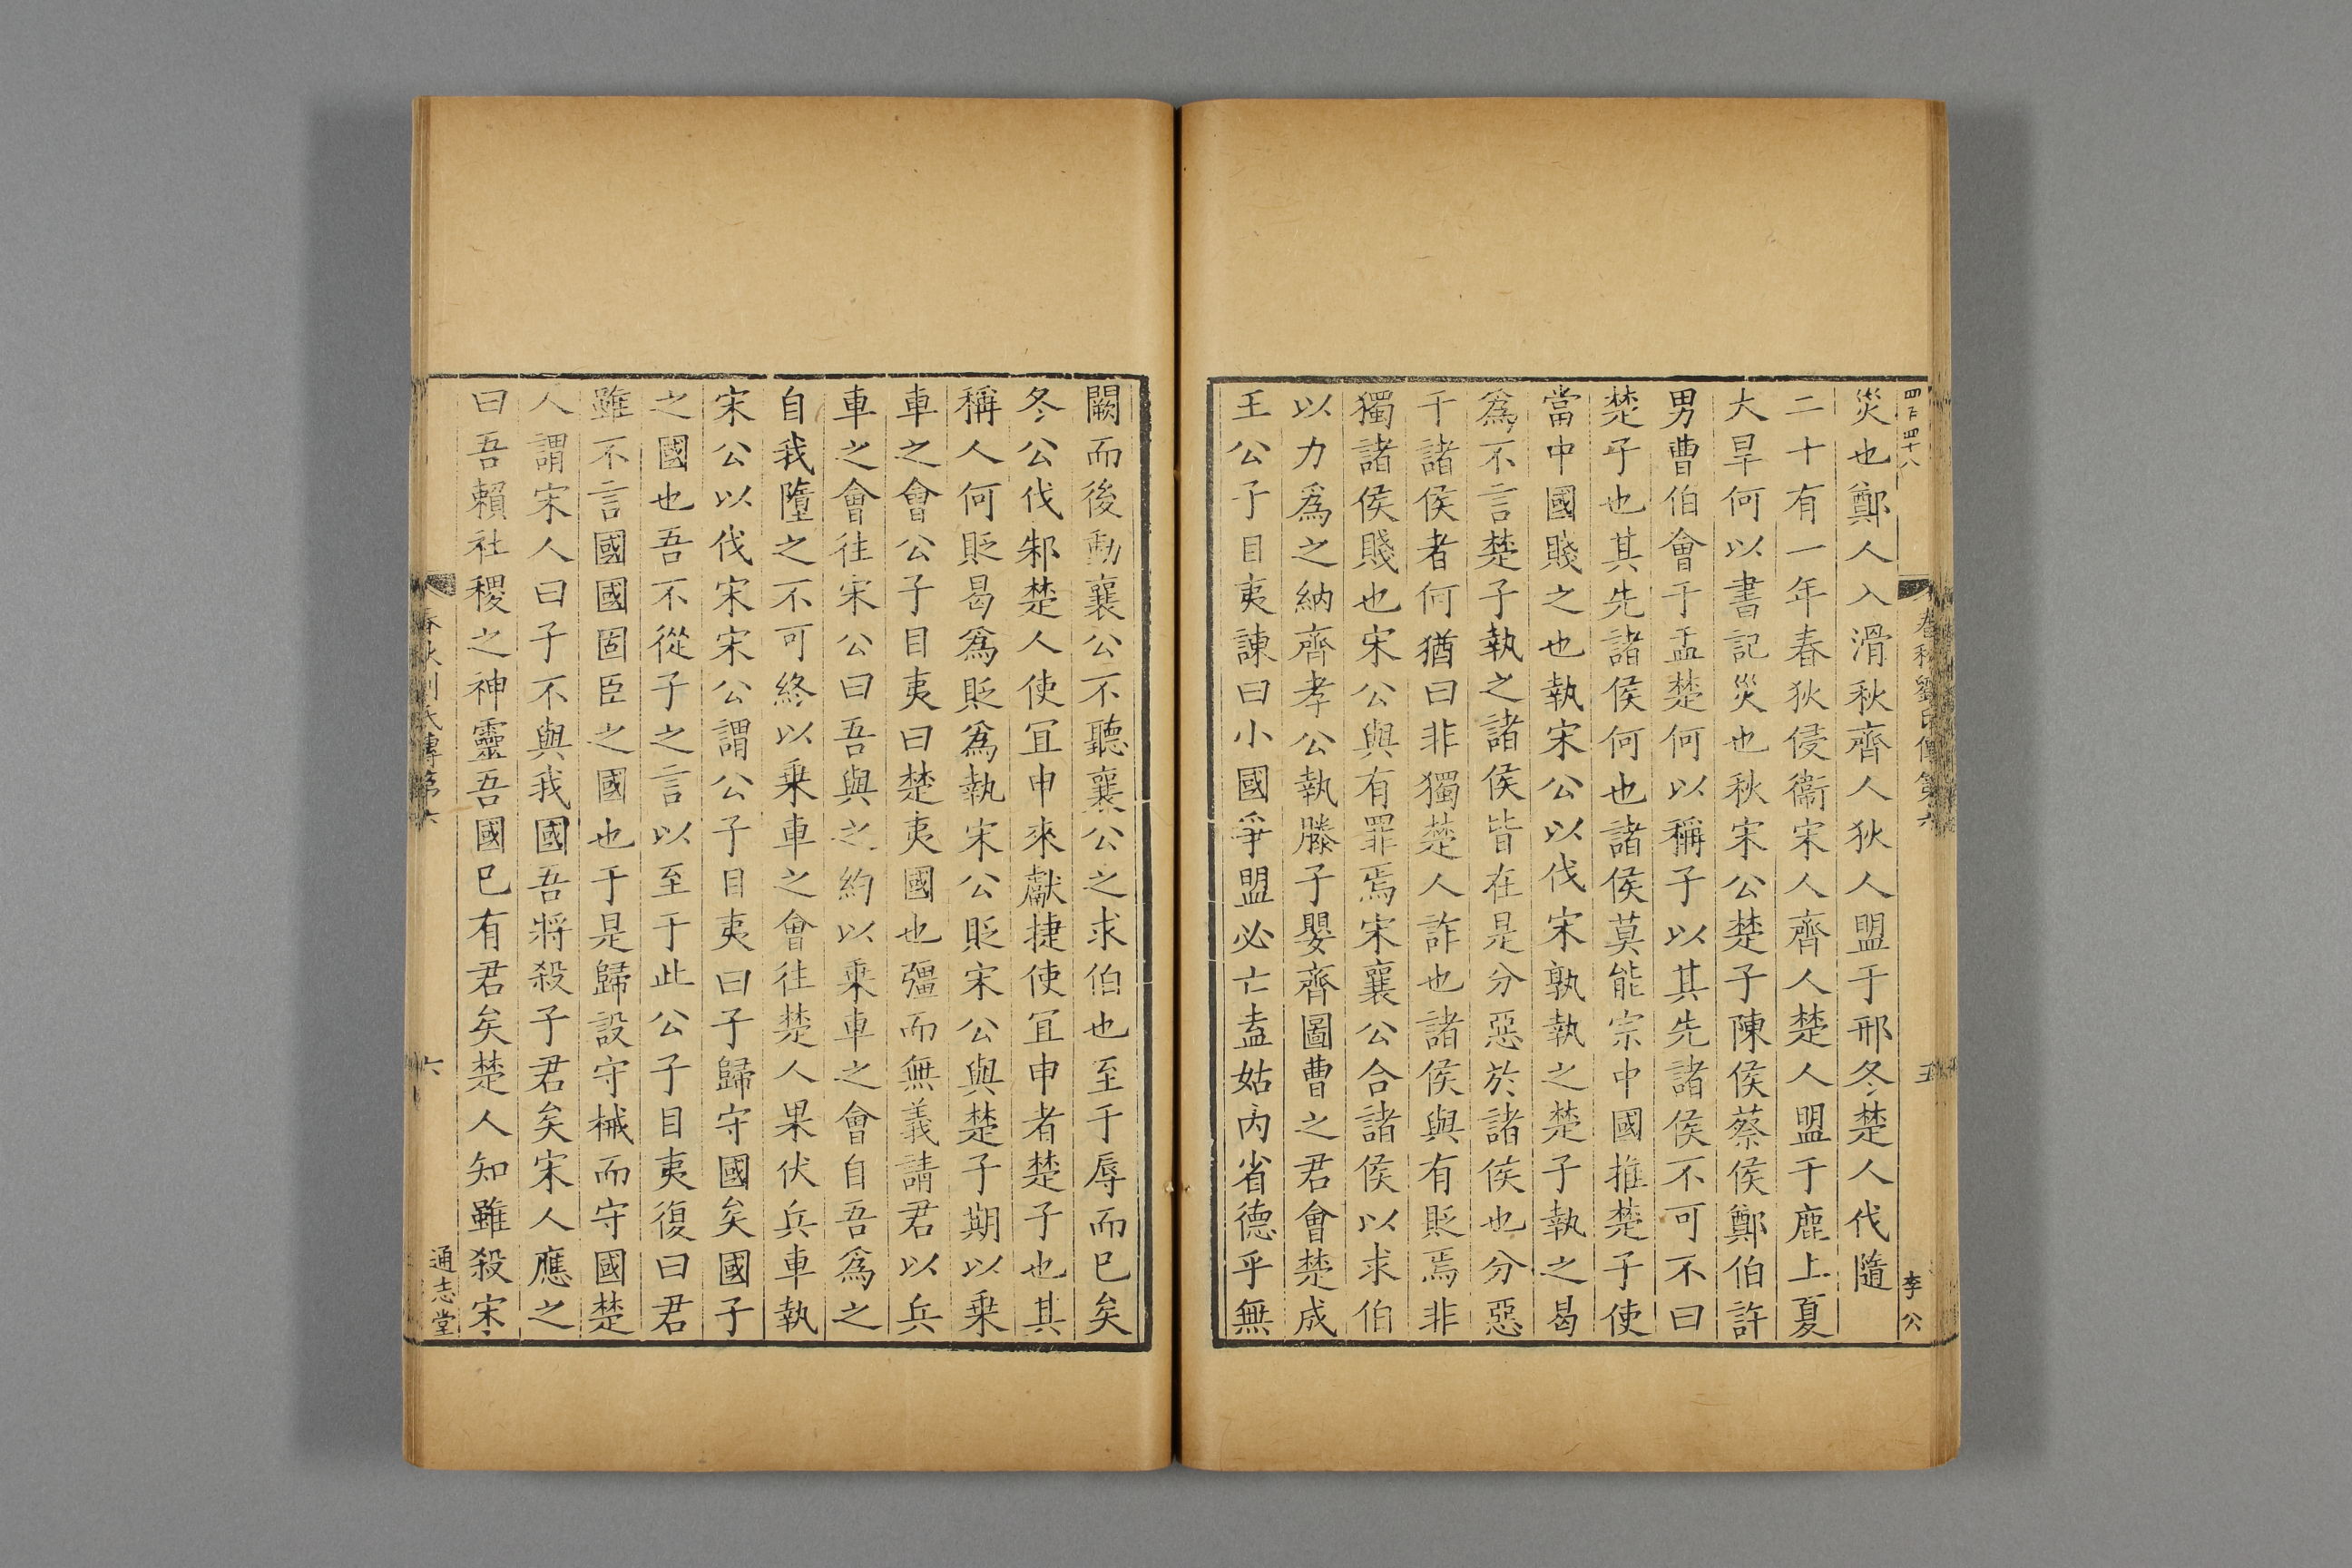 四百四十八
春秋劉氏傳第六
五
李公
災也鄭人入滑秋齊人狄人盟于邢冬楚人伐隨
二十有一年春狄侵衞宋人齊人楚人盟于鹿上夏
大旱何以書記災也秋宋公楚子陳侯蔡侯鄭伯許
男曹伯會于盂楚何以稱子以其先諸侯不可不曰
楚子也其先諸侯何也諸侯莫能宗中國推楚子使
當中國賤之也執宋公以伐宋孰執之楚子執之曷
爲不言楚子執之諸侯皆在是分惡於諸侯也分惡
于諸侯者何猶曰非獨楚人詐也諸侯與有貶焉非
獨諸侯賤也宋公與有罪焉宋襄公合諸侯以求伯
以力爲之納齊孝公執滕子嬰齊圖曹之君會楚成
王公子目夷諫曰小國爭盟必亡盍姑內省德乎無
闕而後動襄公不聽襄公之求伯也至于辱而已矣
冬公伐邾楚人使宜申來獻捷使宜申者楚子也其
稱人何貶曷爲貶爲執宋公貶宋公與楚子期以乗
車之會公子目夷曰楚夷國也彊而無義請君以兵
車之會往宋公曰吾與之約以乗車之會自吾爲之
自我墮之不可終以乗車之會往楚人果伏兵車執
宋公以伐宋宋公謂公子目夷曰子歸守國矣國子
之國也吾不從子之言以至于此公子目夷復曰君
雖不言國國固臣之國也于是歸設守械而守國楚
人謂宋人曰子不與我國吾將殺子君矣宋人應之
曰吾賴社稷之神靈吾國已有君矣楚人知雖殺宋
春秋劉氏傳第六
六
通志堂